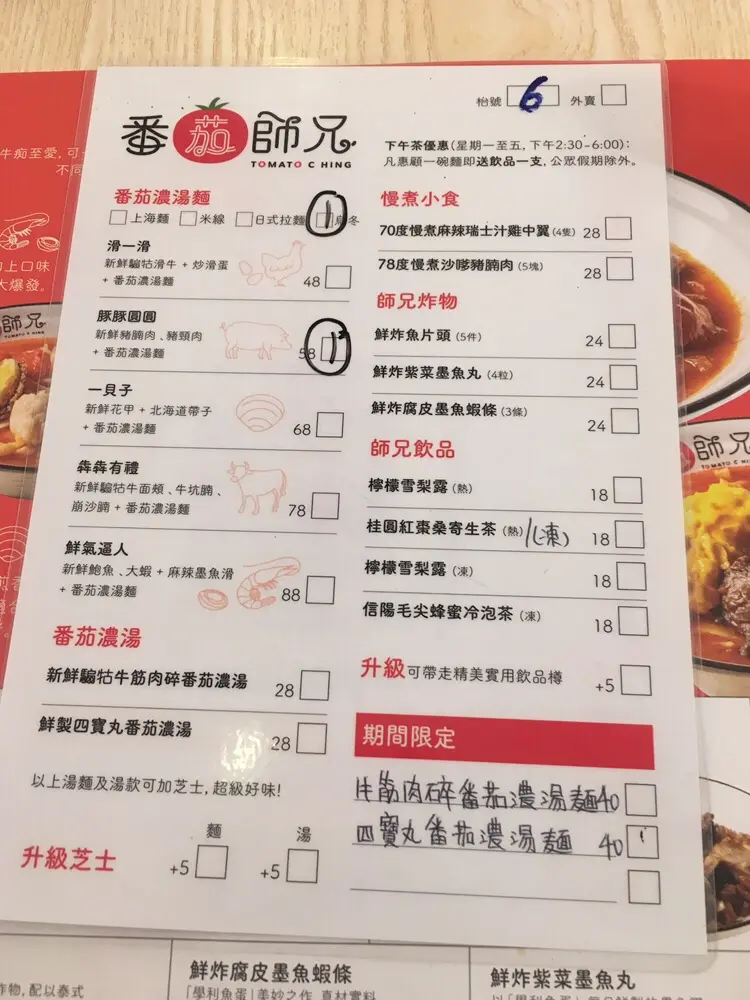 枱號 6 外賣
番茄師兄
TOMATO CHING
下午茶優惠(星期一至五, 下午2:30-6:00):
凡惠顧一碗麵即送飲品一支, 公眾假期除外。
番茄濃湯麵
上海麵 米線 日式拉麵 1 烏冬
滑一滑
新鮮騸牯滑牛 + 炒滑蛋
+ 番茄濃湯麵
48
豚豚圓圓
新鮮豬腩肉、豬頸肉
+ 番茄濃湯麵
58 1
一貝子
新鮮花甲 + 北海道帶子
+ 番茄濃湯麵
68
犇犇有禮
新鮮騸牯牛面頰、牛坑腩、
崩沙腩 + 番茄濃湯麵
78
鮮氣逼人
新鮮鮑魚、大蝦 + 麻辣墨魚滑
+ 番茄濃湯麵
88
番茄濃湯
新鮮騸牯牛筋肉碎番茄濃湯 28
鮮製四寶丸番茄濃湯 28
以上湯麵及湯款可加芝士, 超級好味!
升級芝士
麵 +5
湯 +5
慢煮小食
70度慢煮麻辣瑞士汁雞中翼 (4隻) 28
78度慢煮沙嗲豬腩肉 (5塊) 28
師兄炸物
鮮炸魚片頭 (5件) 24
鮮炸紫菜墨魚丸 (4粒) 24
鮮炸腐皮墨魚蝦條 (3條) 24
師兄飲品
檸檬雪梨露 (熱) 18
桂圓紅棗桑寄生茶 (熱)/(凍) 18
檸檬雪梨露 (凍) 18
信陽毛尖蜂蜜冷泡茶 (凍) 18
升級可帶走精美實用飲品樽 +5
期間限定
牛筋肉碎番茄濃湯麵 40
四寶丸番茄濃湯麵 40
牛痴至愛, 可
不同
上口味
大爆發。
師兄
師兄
TOMATO CHING
炸物, 配以泰式
鮮炸腐皮墨魚蝦條
「學利魚蛋」美妙之作 真材實料
鮮炸紫菜墨魚丸